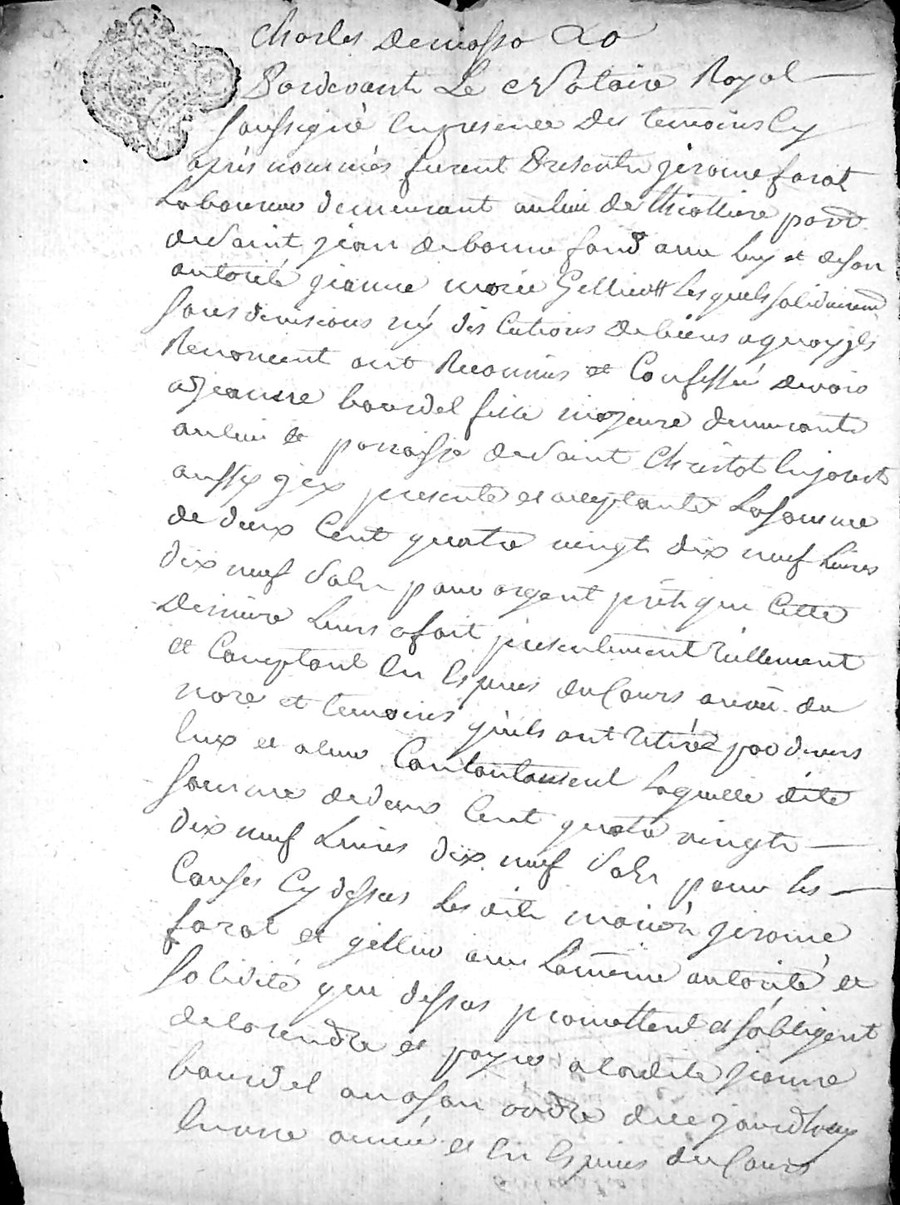 Charles demasso
Pardevant Le Notaire Royal
soussigné En presence des temoins Cy
aprés nommés furent Presents jérome farat
Laboureur demeurant au lieu de parr
de saint jean de bonnefond avec luy et de son
autorité jeanne marie Gellieu Lesquels solidairemt
sans divisions ny discutions de biens a quoy jls
Renoncent ont Reconnus et Confessé devoir
a jeanne bourdel fille majeure demeurante
au lieu et parroisse de saint Christot En jarest
aussy jcy presente et acceptante La somme
de deux Cent quatre vingt dix neuf Livres
dix neuf sols pour argent prété que Cette
derniere Leurs a fait presentement Réellement
et Comptant En Espices du Cours au veü du
nore et temoins qu'ils ont Retirés par devers
Eux et a leur Contantement Laquelle ditte
somme de deux Cent quatre vingt
dix neuf Livres dix neuf sols pour les
Causes Cy dessus Les dits mariés jerome
farat et gellieu avec La même autorité et
solidité que dessus promettent et s'obligent
de la rendre et payer a la ditte jeanne
bourdel ou a son ordre dice jourdhuy
En une année et En Espices du Cours